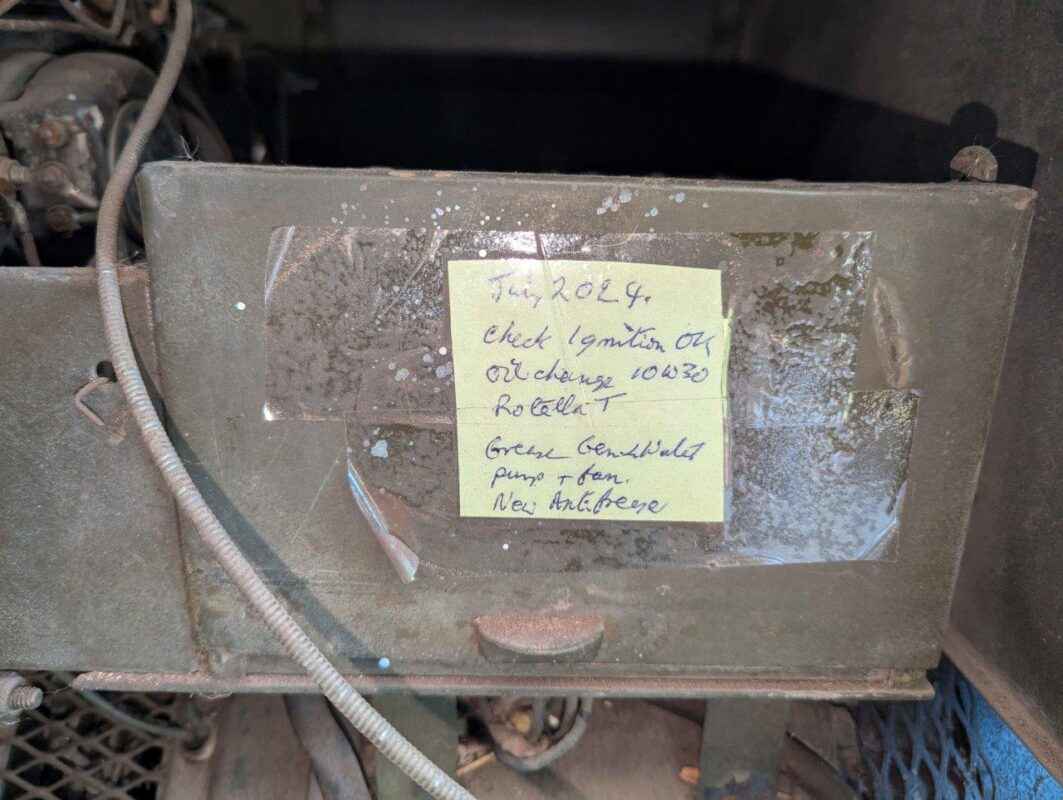 July 2024.
Check Ignition OK
Oil change 10W30
Rotella T
Grease Gen & Water
pump + fan.
New Antifreeze